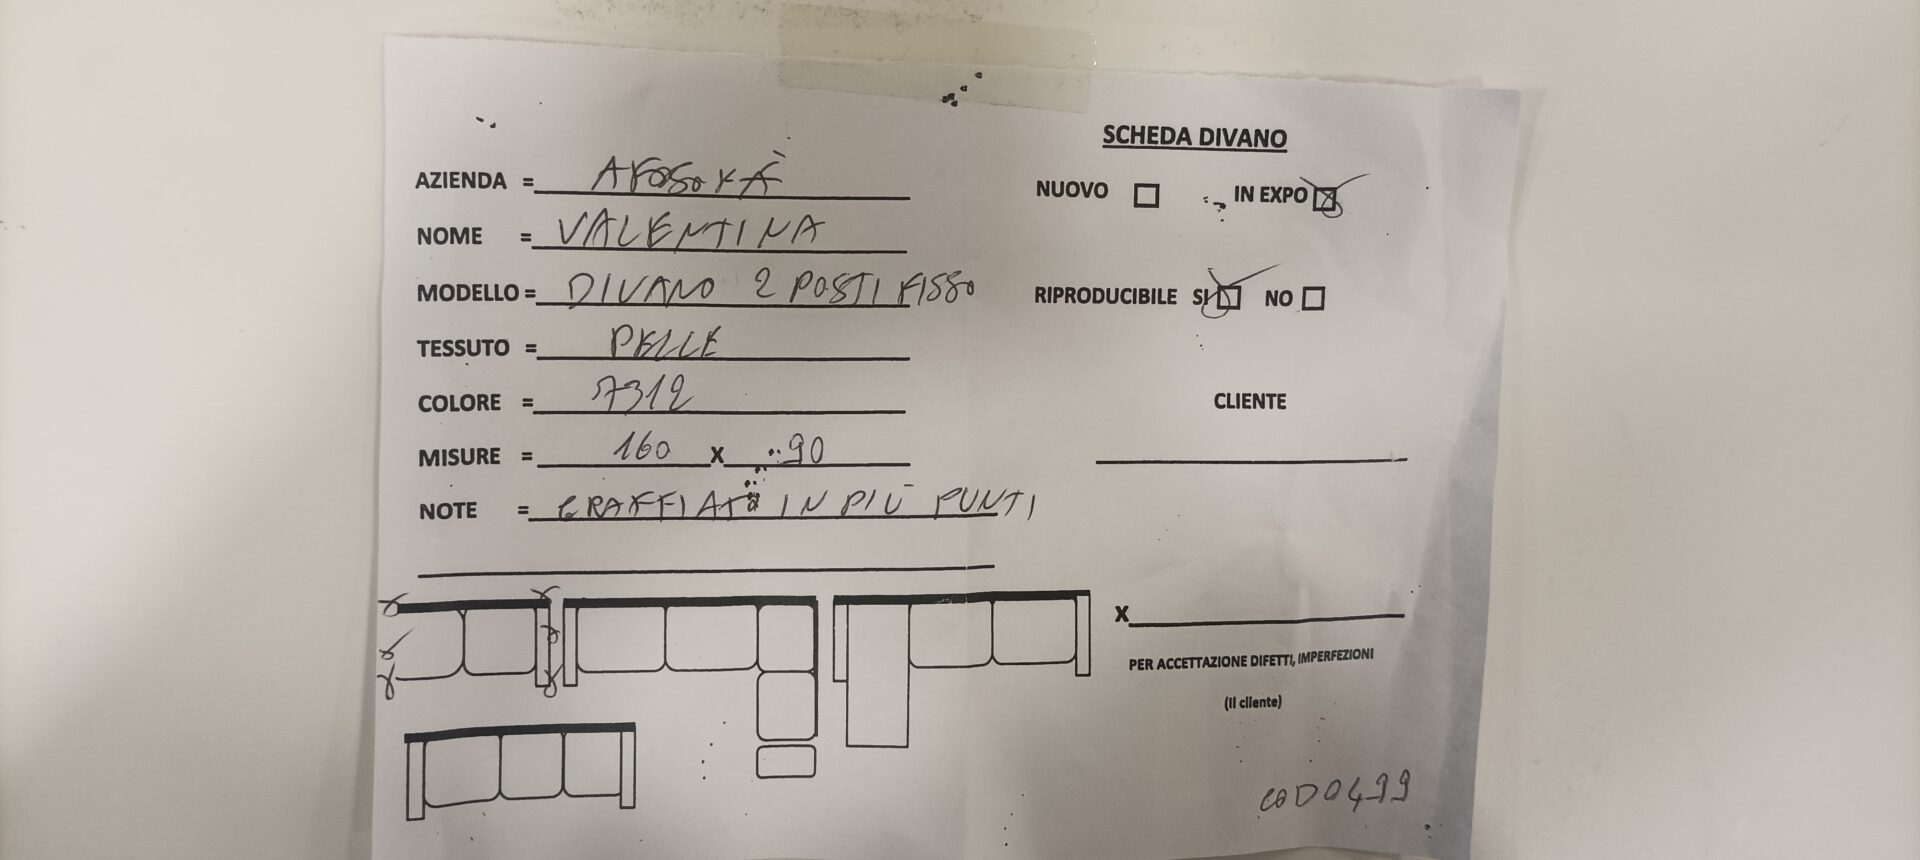 SCHEDA DIVANO
AZIENDA =
NUOVO IN EXPO
NOME = VALENTINA
MODELLO = DIVANO 2 POSTI FISSO
RIPRODUCIBILE SI NO
TESSUTO = PELLE
COLORE = 7312
CLIENTE
MISURE = 160 X 90
NOTE = GRAFFIATO IN PIÙ PUNTI
X
PER ACCETTAZIONE DIFETTI, IMPERFEZIONI
(Il cliente)
COD 0499